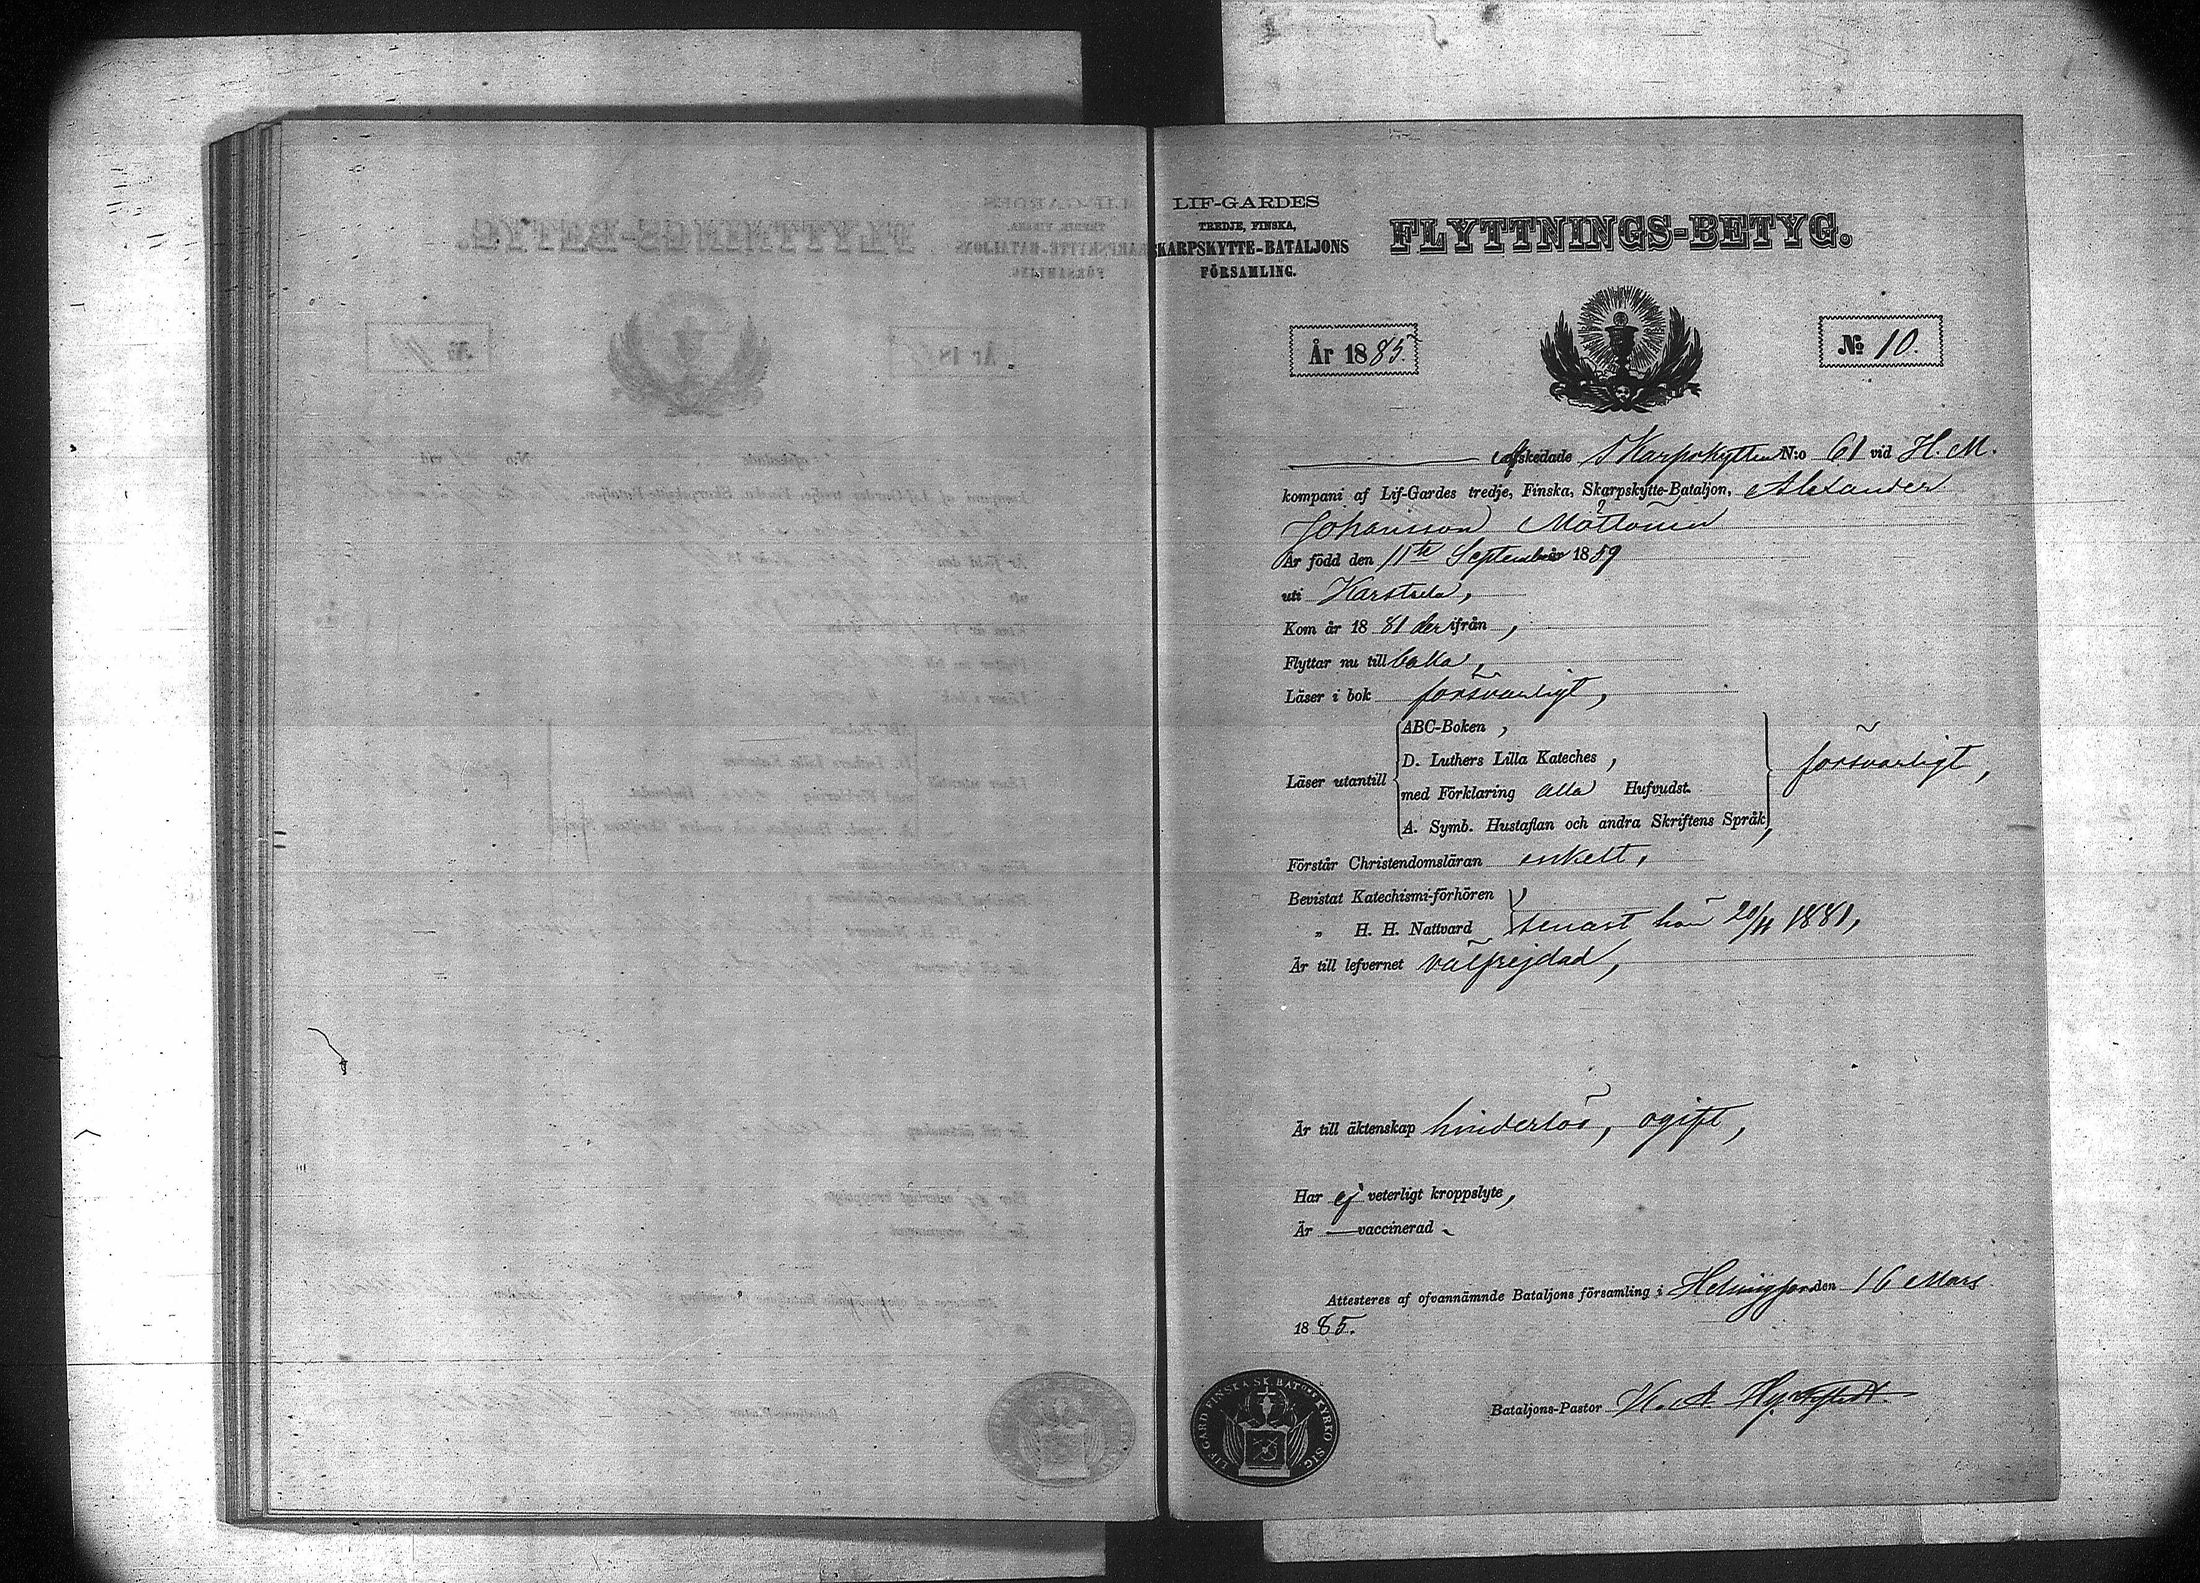 LIF-GARDES
TREDJE, FINSKA,
SKARPSKYTTE-BATALJONS
FÖRSAMLING.
FLYTTNINGS-BETYG.
År 1885.
No 10.
afskedade Skarpskytten N:o 61 vid H. M.
kompani af Lif-Gardes tredje, Finska, Skarpskytte-Bataljon, Alexander
Johansson Möttönen
Är född den 11te September 1859
uti Karstula,
Kom år 1881 derifrån,
Flyttar nu tillbaka,
Läser i bok försvarligt,
Läser utantill
ABC-Boken,
D. Luthers Lilla Kateches,
med Förklaring alla Hufvudst.
A. Symb. Hustaflan och andra Skriftens Språk,
försvarligt,
Förstår Christendomsläran enkelt,
Bevistat Katechismi-förhören
„ H. H. Nattvard senast här 20/11 1881,
Är till lefvernet välfrejdad,
Är till äktenskap hinderlös, ogift,
Har ej veterligt kroppslyte,
Är — vaccinerad.
Attesteres af ofvannämnde Bataljons församling i Helsingfors den 16 Mars
1885.
Bataljons-Pastor K. A.
LIF GARD FINSKA SK. BATONS KYRKO SIG